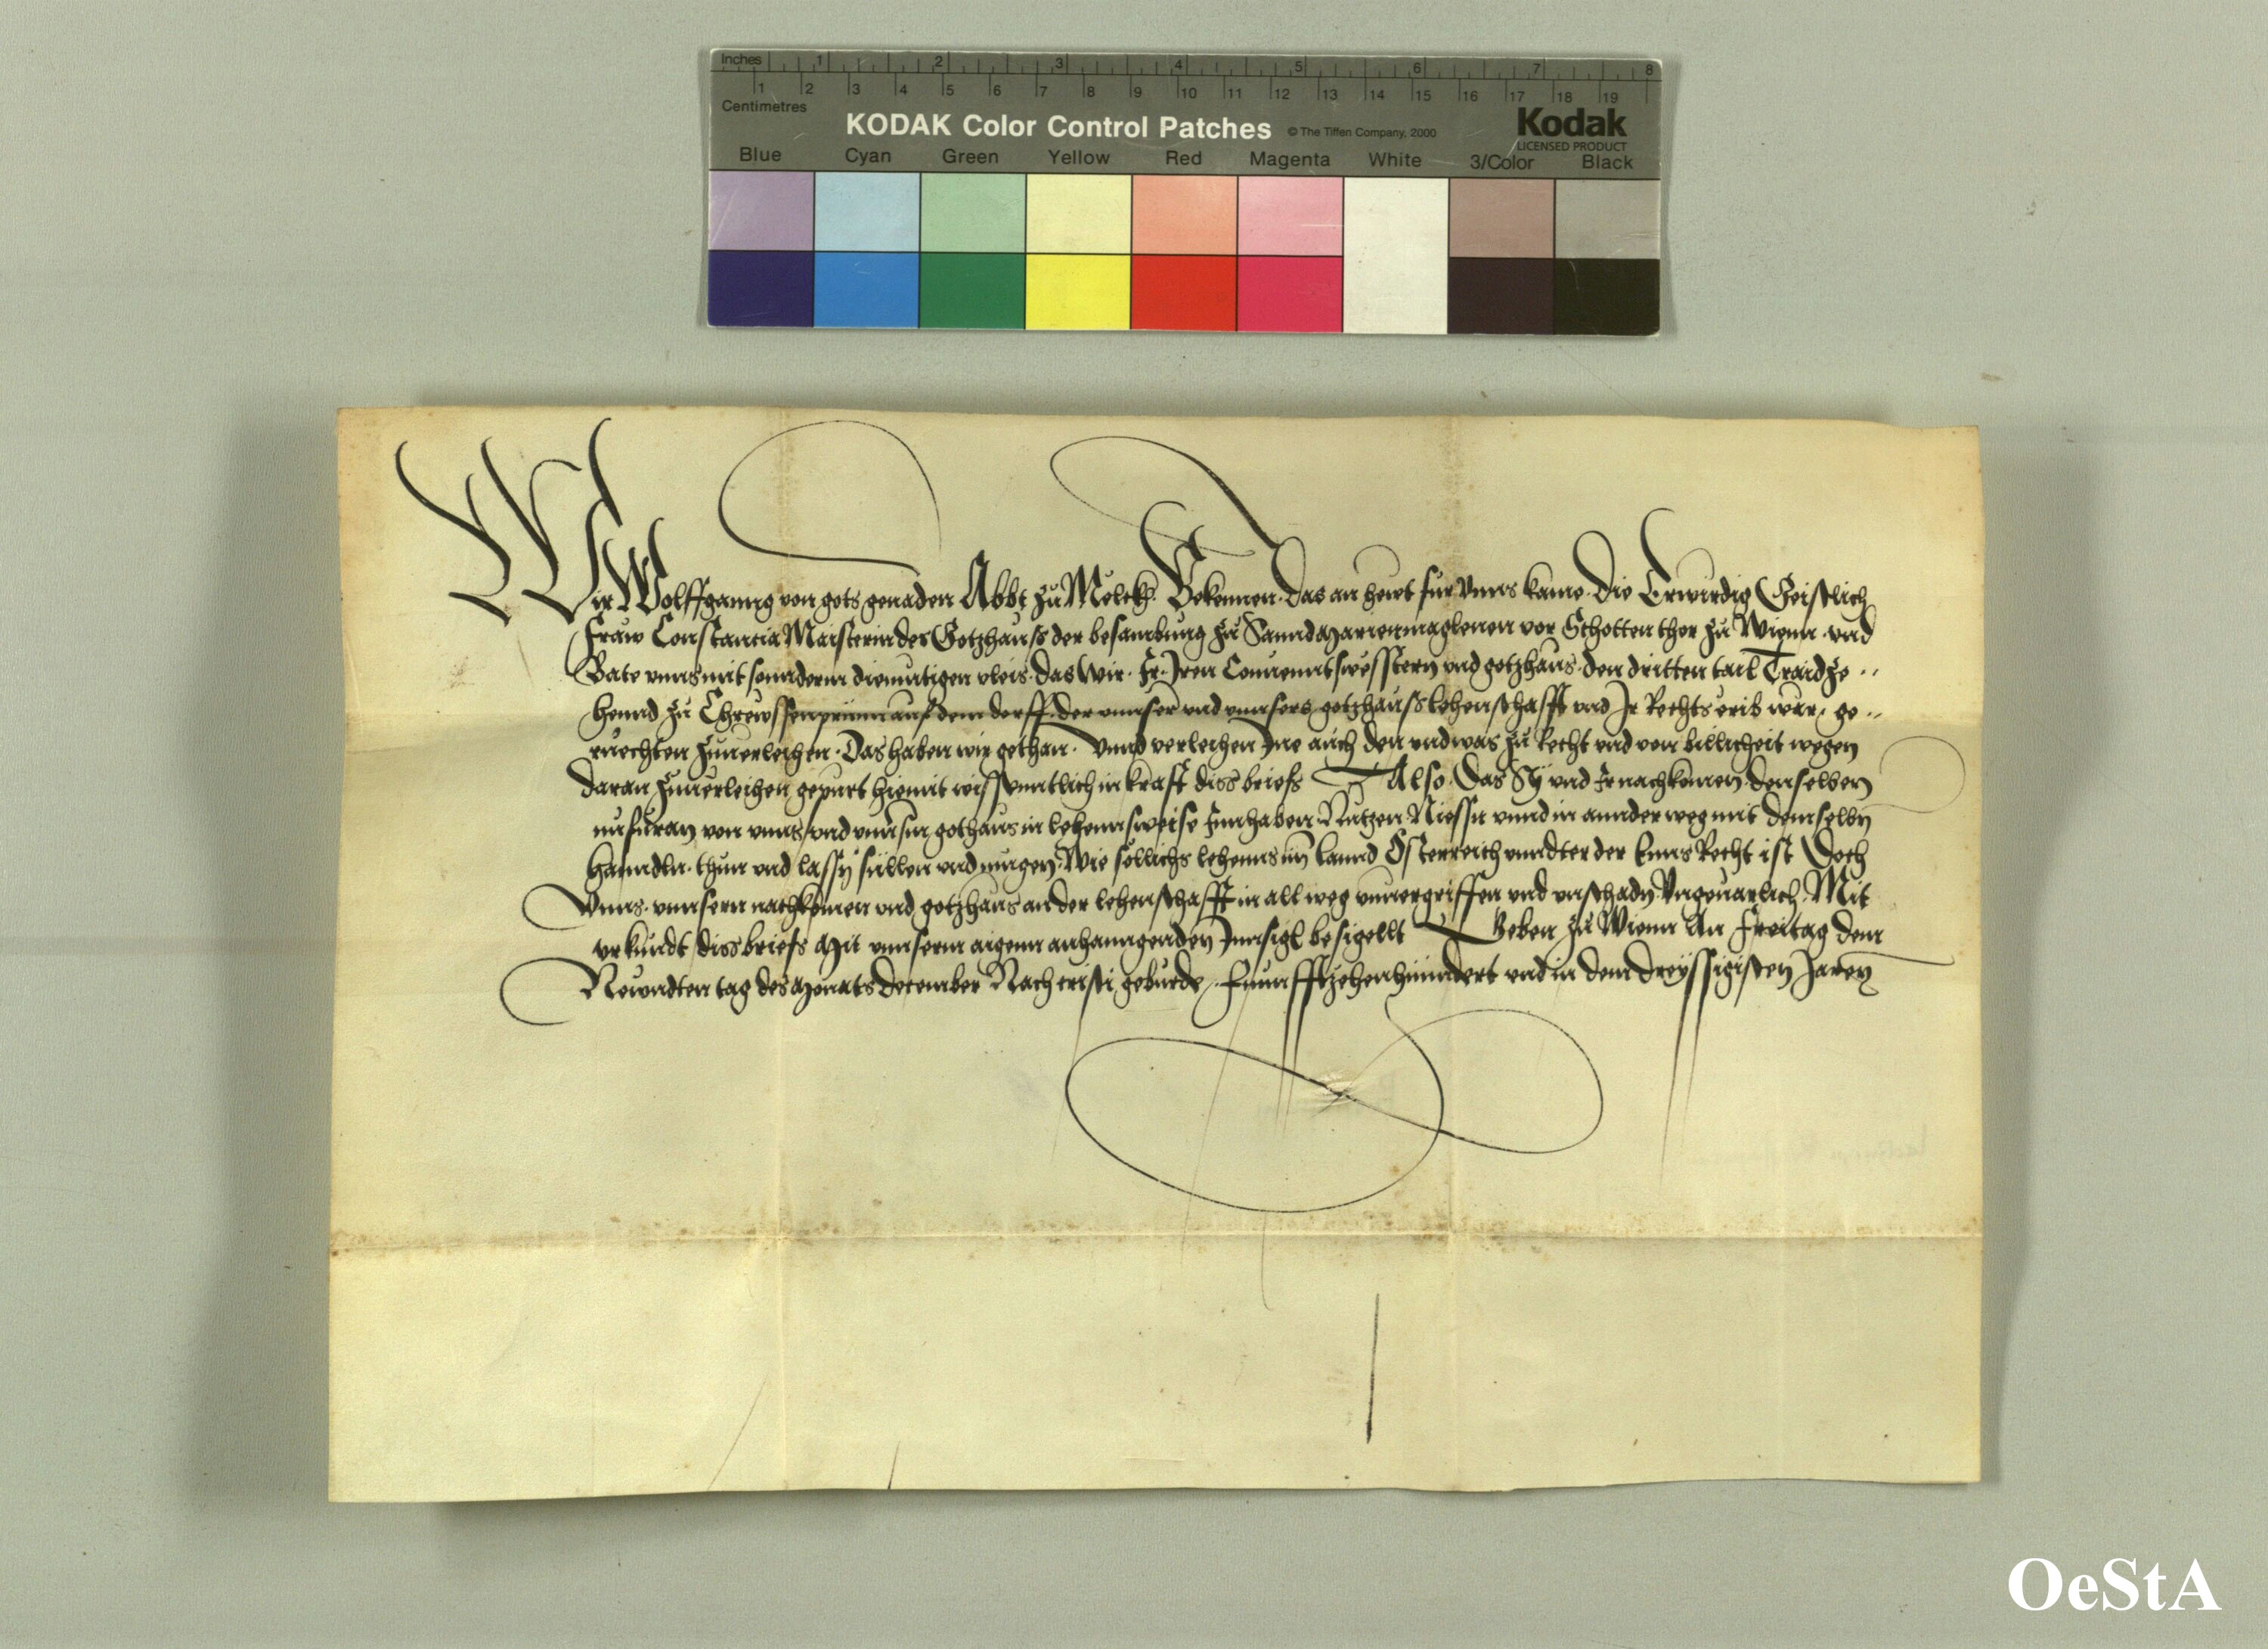 Inches 1 2 3 4 5 6 7 8
1 2 3 4 5 6 7 8 9 10 11 12 13 14 15 16 17 18 19
Centimetres
KODAK Color Control Patches © The Tiffen Company, 2000 Kodak
LICENSED PRODUCT
Blue Cyan Green Yellow Red Magenta White 3/Color Black
Wir Wolffganng von gots genaden Abbt zu Melckh. Bekennen. das an hewt fur vnns kame. Die Erwirdig Geistlich
fraw Constancia Maisterin des Gotzhauss der besambung zu Sannd Marienmaglenen vor Schotten thor zu Wienn. vnd
Bate vnns mit sonnderm diemutigen vleis. das wir. Jr. Jren Conuenntswesstern vnd gotzhaus. den dritten tail Traidze ..
hennd zu Chrewssenprunn auf dem dorff. der vnnser vnd vnnsers gotzhauss lehenschafft vnd Jr Rechts erib war. ge ..
ruechten zuuerleihen. Das haben wir gethan. Vnnd verleihen Jne auch den vnd was zu Recht vnd von billicheit wegen
daran zuuerleihen gepurt hiemit wissenntlich in kraft diss briefs Also. Das Sy vnd Jr nachkomen denselben
nu furan von vnns vnd vnnserm gothaus in lehennsweise Innhaben Nutzen Niessn vnnd in annder weg mit demselbn
hanndln. thun vnd lassn sullen vnd mugen. Wie sollichs lehenns im Lannd Osterreich vnndter der Enns Recht ist Doch
Vnns. vnnsern nachkomen vnd gotzhaus an der lehenschafft in all weg vnuergriffen vnd vnschadn Vngeuarlich. Mit
vrkundt diss briefs Mit vnnserm aigenn anhanngenden Innsigl besigellt Geben zu Wienn An Freitag dem
Newndten tag des Monats December Nach cristi geburde. Funnfftzehenhundert vnd in dem dreyssigisten Jaren
OeStA